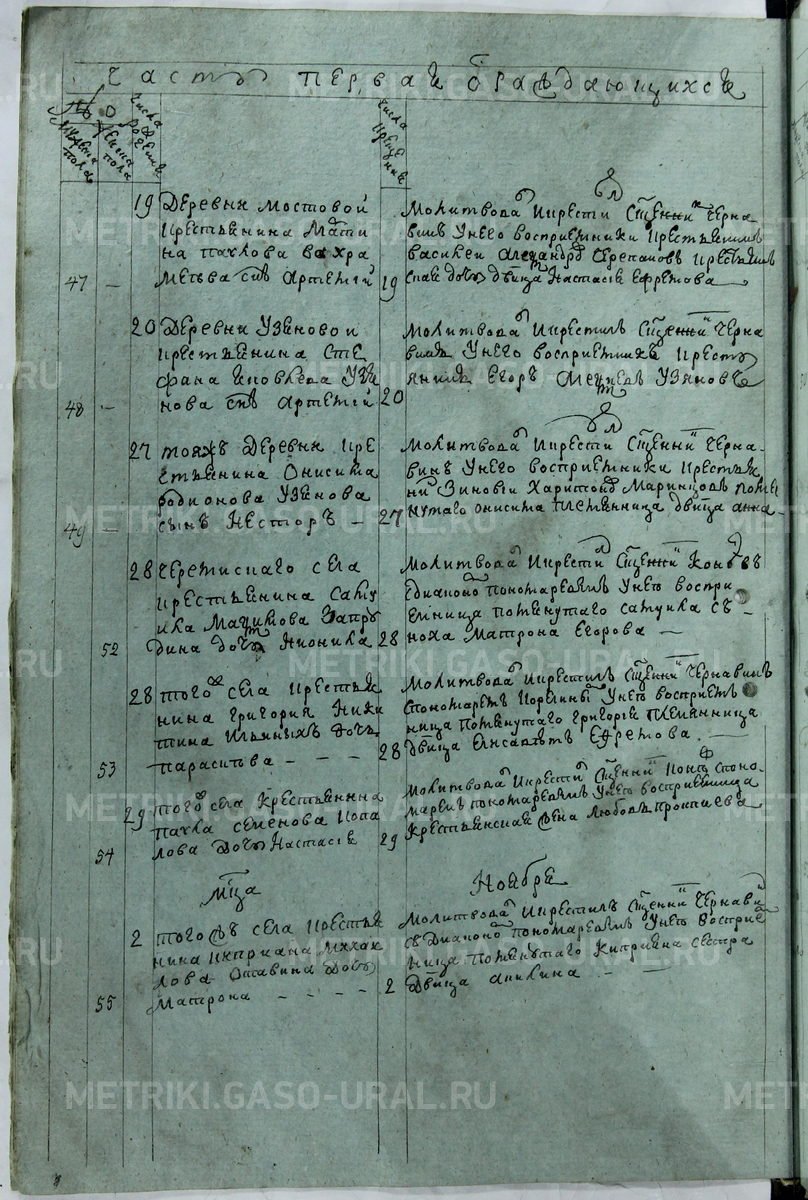 Часть первая ораждающихся
№ О
Мужеска пола
женска пола
числа рожденія
числа крещенія
19 Деревни Мостовой
крестьянина Марти
на Пахкова Вахра
47 — мѣева снъ Артемій
Молитвовалъ и крести Сщенникъ Черна
винъ у него восприемники крестьянинъ
Василеи Александръ Черепановъ крестьян
19 ская дочь двица Настасья Ефремова
20 Деревни Узяновои
крестьянина Сте
фана Яковлева Узя
48 — нова снъ Артемій
Молитвовалъ и крестилъ Сщенникъ Черна
винъ у него восприемникъ крестъ
янинъ Егоръ Узяновъ
20
27 тояжъ деревни кре
стьянина Онисима
Родионова Узянова
49 — сынъ Несторъ —
Молитвовалъ и крести Сщенникъ Черна
винъ у него восприемники крестьян
нъ Зиновіи Харитоновъ помя
27 нутаго Онисима племянница двица Анна —
28 Черемисскаго села
крестьянина Саму
ила Мачихова Запру
52 дина дочь Нионила
Молитвовалъ и крести Сщенникъ Коновъ
Едиаконо пономаремъ у него воспри
емница помянутаго Самуила с
28 ноха Матрона Егорова —
28 того села крестьян
нина Григория Ники
тина Ильиныхъ дочь
53 Парасковья — — —
Молитвовалъ и крестилъ Сщенникъ Чернавинъ
с пономаремъ у него восприем
ница помянутаго Григорья племянница
28 двица Елисаветъ Ефремова. —
29 того села Крестьянина
Павла Семенова Попа
54 лова дочь Настасья
Молитвовалъ и крести Сщенникъ Поповъ споно
маремъ пономаремъ у него восприемница
29 Крестьянская жена Любовь Прокпиева
Мца Ноября
2 того жъ села крестья
нина Киприана Михаи
лова Отавина дочь
55 Матрона — — — —
Молитвовалъ и крестилъ Сщенникъ Чернави
съ Диаконо пономаремъ у него восприе
ница помянутаго Киприяна сестра
2 двица Аникина — — —
METRIKI.GASO-URAL.RU